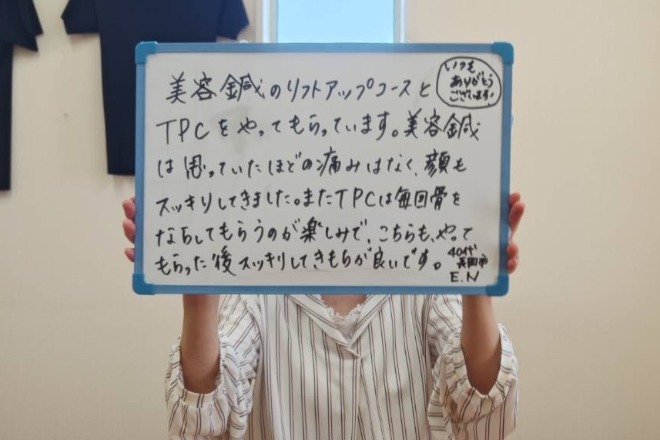 美容鍼のリフトアップコースと
TPCをやってもらっています。美容鍼
は思っていたほどの痛みはなく、顔も
スッキリしてきました。またTPCは毎回骨を
ならしてもらうのが楽しみで、こちらも、やって
もらった後スッキリしてきもちが良いです。
いつも
ありがとう
ございます!
40代
長岡市
E.N